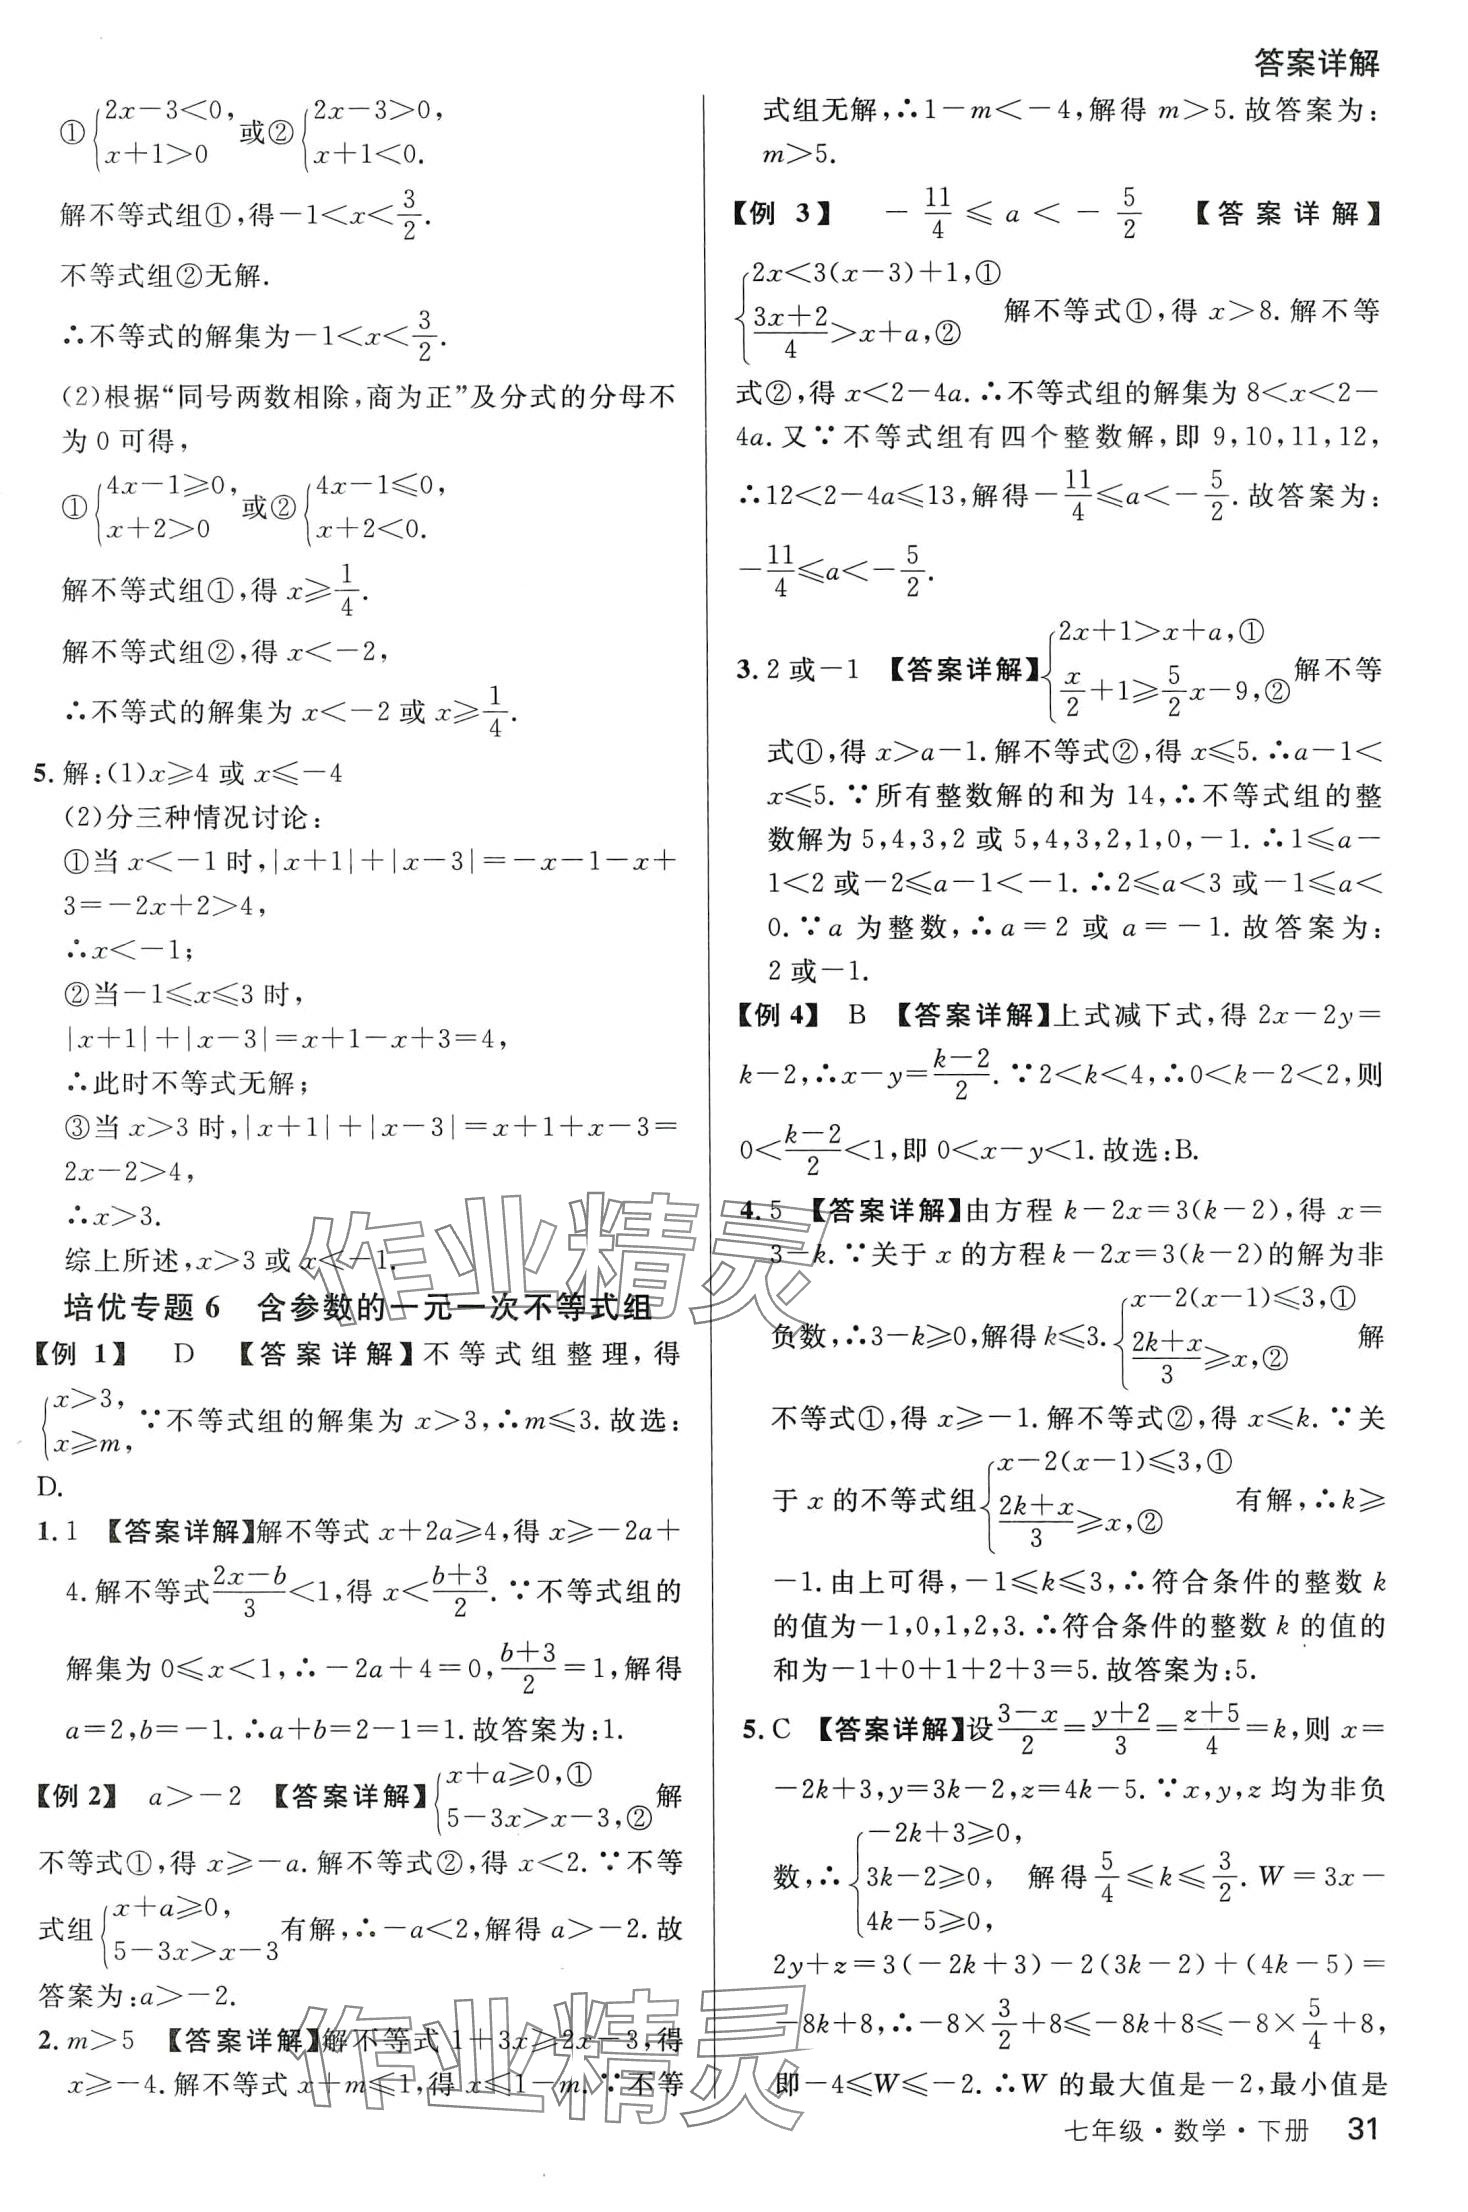 答案详解
①{2x－3＜0, x＋1＞0 或②{2x－3＞0, x＋1＜0.
解不等式组①,得－1＜x＜3/2.
不等式组②无解.
∴不等式的解集为－1＜x＜3/2.
(2)根据“同号两数相除,商为正”及分式的分母不
为 0 可得,
①{4x－1≥0, x＋2＞0 或②{4x－1≤0, x＋2＜0.
解不等式组①,得 x≥1/4.
解不等式组②,得 x＜－2,
∴不等式的解集为 x＜－2 或 x≥1/4.
5. 解:(1)x≥4 或 x≤－4
(2)分三种情况讨论:
①当 x＜－1 时,|x＋1|＋|x－3|＝－x－1－x＋
3＝－2x＋2＞4,
∴x＜－1;
②当－1≤x≤3 时,
|x＋1|＋|x－3|＝x＋1－x＋3＝4,
∴此时不等式无解;
③当 x＞3 时,|x＋1|＋|x－3|＝x＋1＋x－3＝
2x－2＞4,
∴x＞3.
综上所述,x＞3 或 x＜－1.
培优专题 6 含参数的一元一次不等式组
【例 1】 D 【答案详解】不等式组整理,得
{x＞3, x≥m, ∵不等式组的解集为 x＞3,∴m≤3.故选:
D.
1. 1 【答案详解】解不等式 x＋2a≥4,得 x≥－2a＋
4.解不等式(2x－b)/3＜1,得 x＜(b＋3)/2.∵不等式组的
解集为 0≤x＜1,∴－2a＋4＝0,(b＋3)/2＝1,解得
a＝2,b＝－1.∴a＋b＝2－1＝1.故答案为:1.
【例 2】 a＞－2 【答案详解】{x＋a≥0,① 5－3x＞x－3,② 解
不等式①,得 x≥－a.解不等式②,得 x＜2.∵不等
式组{x＋a≥0, 5－3x＞x－3 有解,∴－a＜2,解得 a＞－2.故
答案为:a＞－2.
2. m＞5 【答案详解】解不等式 1＋3x≥2x－3,得
x≥－4.解不等式 x＋m≤1,得 x≤1－m.∵不等
式组无解,∴1－m＜－4,解得 m＞5.故答案为:
m＞5.
【例 3】 －11/4≤a＜－5/2 【答案详解】
{2x＜3(x－3)＋1,① (3x＋2)/4＞x＋a,② 解不等式①,得 x＞8.解不等
式②,得 x＜2－4a.∴不等式组的解集为 8＜x＜2－
4a.又∵不等式组有四个整数解,即 9,10,11,12,
∴12＜2－4a≤13,解得－11/4≤a＜－5/2.故答案为:
－11/4≤a＜－5/2.
3. 2 或－1 【答案详解】{2x＋1＞x＋a,① x/2＋1≥5/2x－9,② 解不等
式①,得 x＞a－1.解不等式②,得 x≤5.∴a－1＜
x≤5.∵所有整数解的和为 14,∴不等式组的整
数解为 5,4,3,2 或 5,4,3,2,1,0,－1.∴1≤a－
1＜2 或－2≤a－1＜－1.∴2≤a＜3 或－1≤a＜
0.∵a 为整数,∴a＝2 或 a＝－1.故答案为:
2 或－1.
【例 4】 B 【答案详解】上式减下式,得 2x－2y＝
k－2,∴x－y＝(k－2)/2.∵2＜k＜4,∴0＜k－2＜2,则
0＜(k－2)/2＜1,即 0＜x－y＜1.故选:B.
4. 5 【答案详解】由方程 k－2x＝3(k－2),得 x＝
3－k.∵关于 x 的方程 k－2x＝3(k－2)的解为非
负数,∴3－k≥0,解得 k≤3.{x－2(x－1)≤3,① (2k＋x)/3≥x,② 解
不等式①,得 x≥－1.解不等式②,得 x≤k.∵关
于 x 的不等式组{x－2(x－1)≤3,① (2k＋x)/3≥x,② 有解,∴k≥
－1.由上可得,－1≤k≤3,∴符合条件的整数 k
的值为－1,0,1,2,3.∴符合条件的整数 k 的值的
和为－1＋0＋1＋2＋3＝5.故答案为:5.
5. C 【答案详解】设(3－x)/2＝(y＋2)/3＝(z＋5)/4＝k,则 x＝
－2k＋3,y＝3k－2,z＝4k－5.∵x,y,z 均为非负
数,∴{－2k＋3≥0, 3k－2≥0, 4k－5≥0, 解得5/4≤k≤3/2.W＝3x－
2y＋z＝3(－2k＋3)－2(3k－2)＋(4k－5)＝
－8k＋8,∴－8×3/2＋8≤－8k＋8≤－8×5/4＋8,
即－4≤W≤－2.∴W 的最大值是－2,最小值是
七年级·数学·下册 31
作业精灵
作业精灵